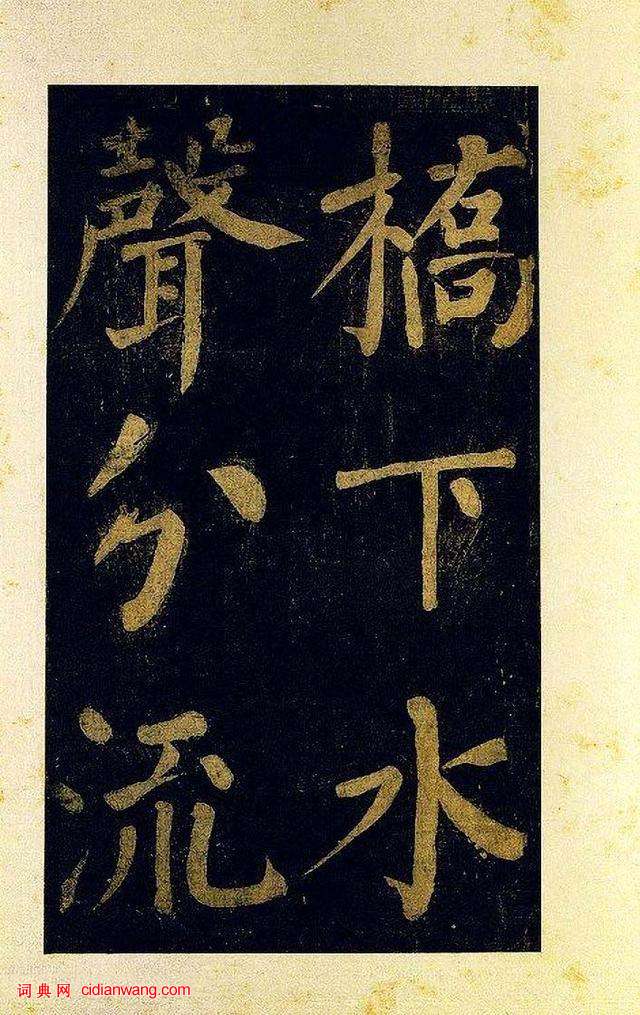 橋下水
聲分流
词典网 cidianwang.com